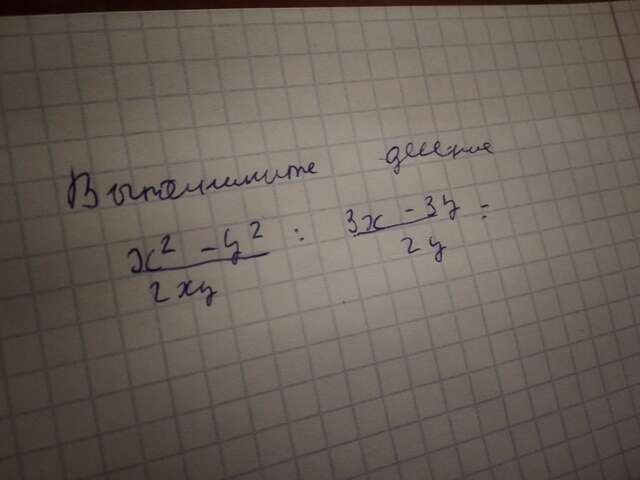 Выполните деление
x² - y² : 3x - 3y =
2xy 2y